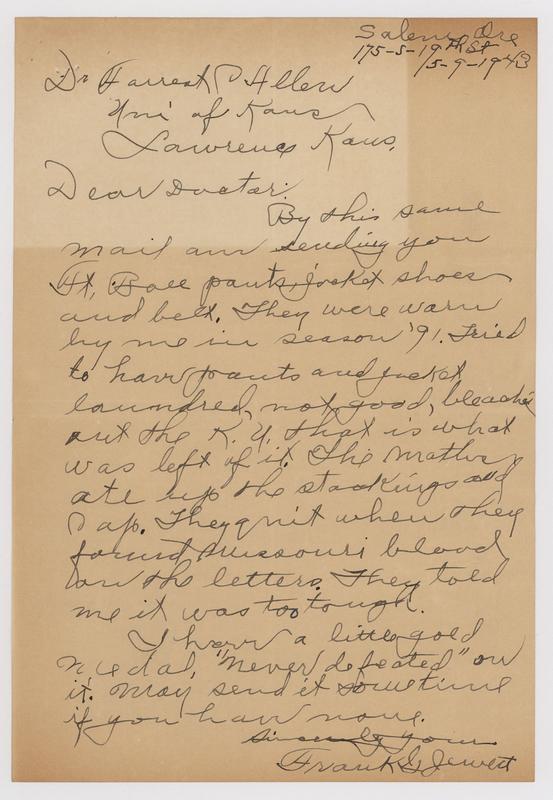 Salem, Ore
175-S-19th St
5-9-1943
Dr Forrest C Allen
Uni of Kans
Lawrence Kans.
Dear Doctor:
By this same
mail am sending you
Ft, Ball pants, jacket shoes
and belt. They were warn
by me in season '91. Tried
to have pants and jacket
laundred, not good, bleached
out the K. U. that is what
was left of it. The Moths
ate up the stockings and
cap. They quit when they
found Missouri blood
on the letters. They told
me it was too tough.
I have a little gold
medal, "never defeated" on
it. May send it sometime
if you have none.
Sincerely yours
Frank G Jewett